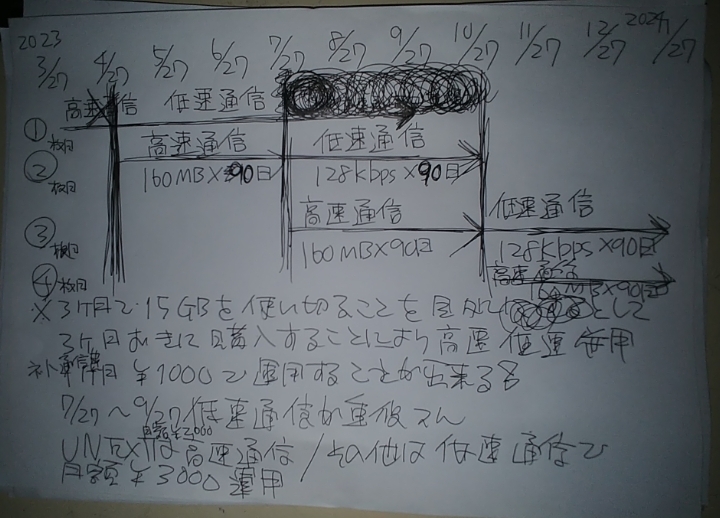 2023
3/27 4/27 5/27 6/27 7/27 8/27 9/27 10/27 11/27 12/27 2024 1/27
高速通信 低速通信
①枚目
高速通信 低速通信
②枚目 160MB×90日 128kbps×90日
高速通信 低速通信
③枚目 160MB×90日 128kbps×90日
高速通信
④枚目 160MB×90日
※3ヶ月で15GBを使い切ることを として
3ヶ月おきに購入することにより高速低速毎月
¥1000で運用することが出来る
7/27〜9/27低速通信が重複
月額¥2000
は高速通信/その他は低速通信で
月額¥3000運用